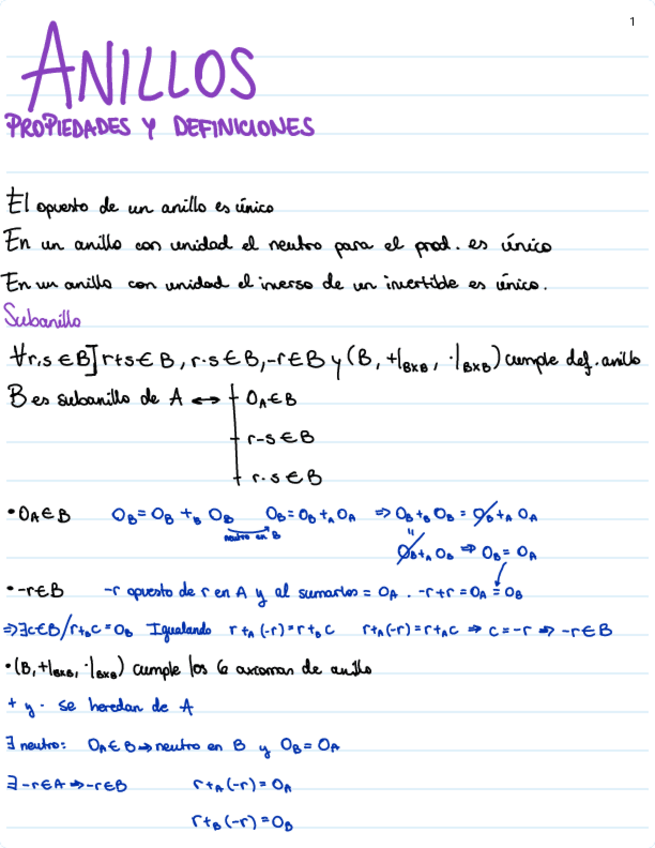 1
ANILLOS
PROPIEDADES Y DEFINICIONES
El opuesto de un anillo es único
En un anillo con unidad el neutro para el prod. es único
En un anillo con unidad el inverso de un invertible es único.
Subanillo
∀r,s ∈ B] r+s ∈ B, r·s ∈ B, -r ∈ B y (B, +|BxB, ·|BxB) cumple def. anillo
B es subanillo de A ↔ 0A ∈ B
r-s ∈ B
r·s ∈ B
• 0A ∈ B 0B = 0B +B 0B 0B = 0B +A 0A ⇒ 0B +B 0B = 0B +A 0A
neutro en B
" 0B +A 0B ⇒ 0B = 0A
• -r ∈ B -r opuesto de r en A y al sumarlos = 0A . -r+r = 0A = 0B
⇒ ∃c ∈ B / r +B c = 0B Igualando r +A (-r) = r +B c r +A (-r) = r +A c ⇒ c = -r ⇒ -r ∈ B
• (B, +|BxB, ·|BxB) cumple los 6 axiomas de anillo
+ y · se heredan de A
∃ neutro: 0A ∈ B ⇒ neutro en B y 0B = 0A
∃ -r ∈ A ⇒ -r ∈ B r +A (-r) = 0A
r +B (-r) = 0B